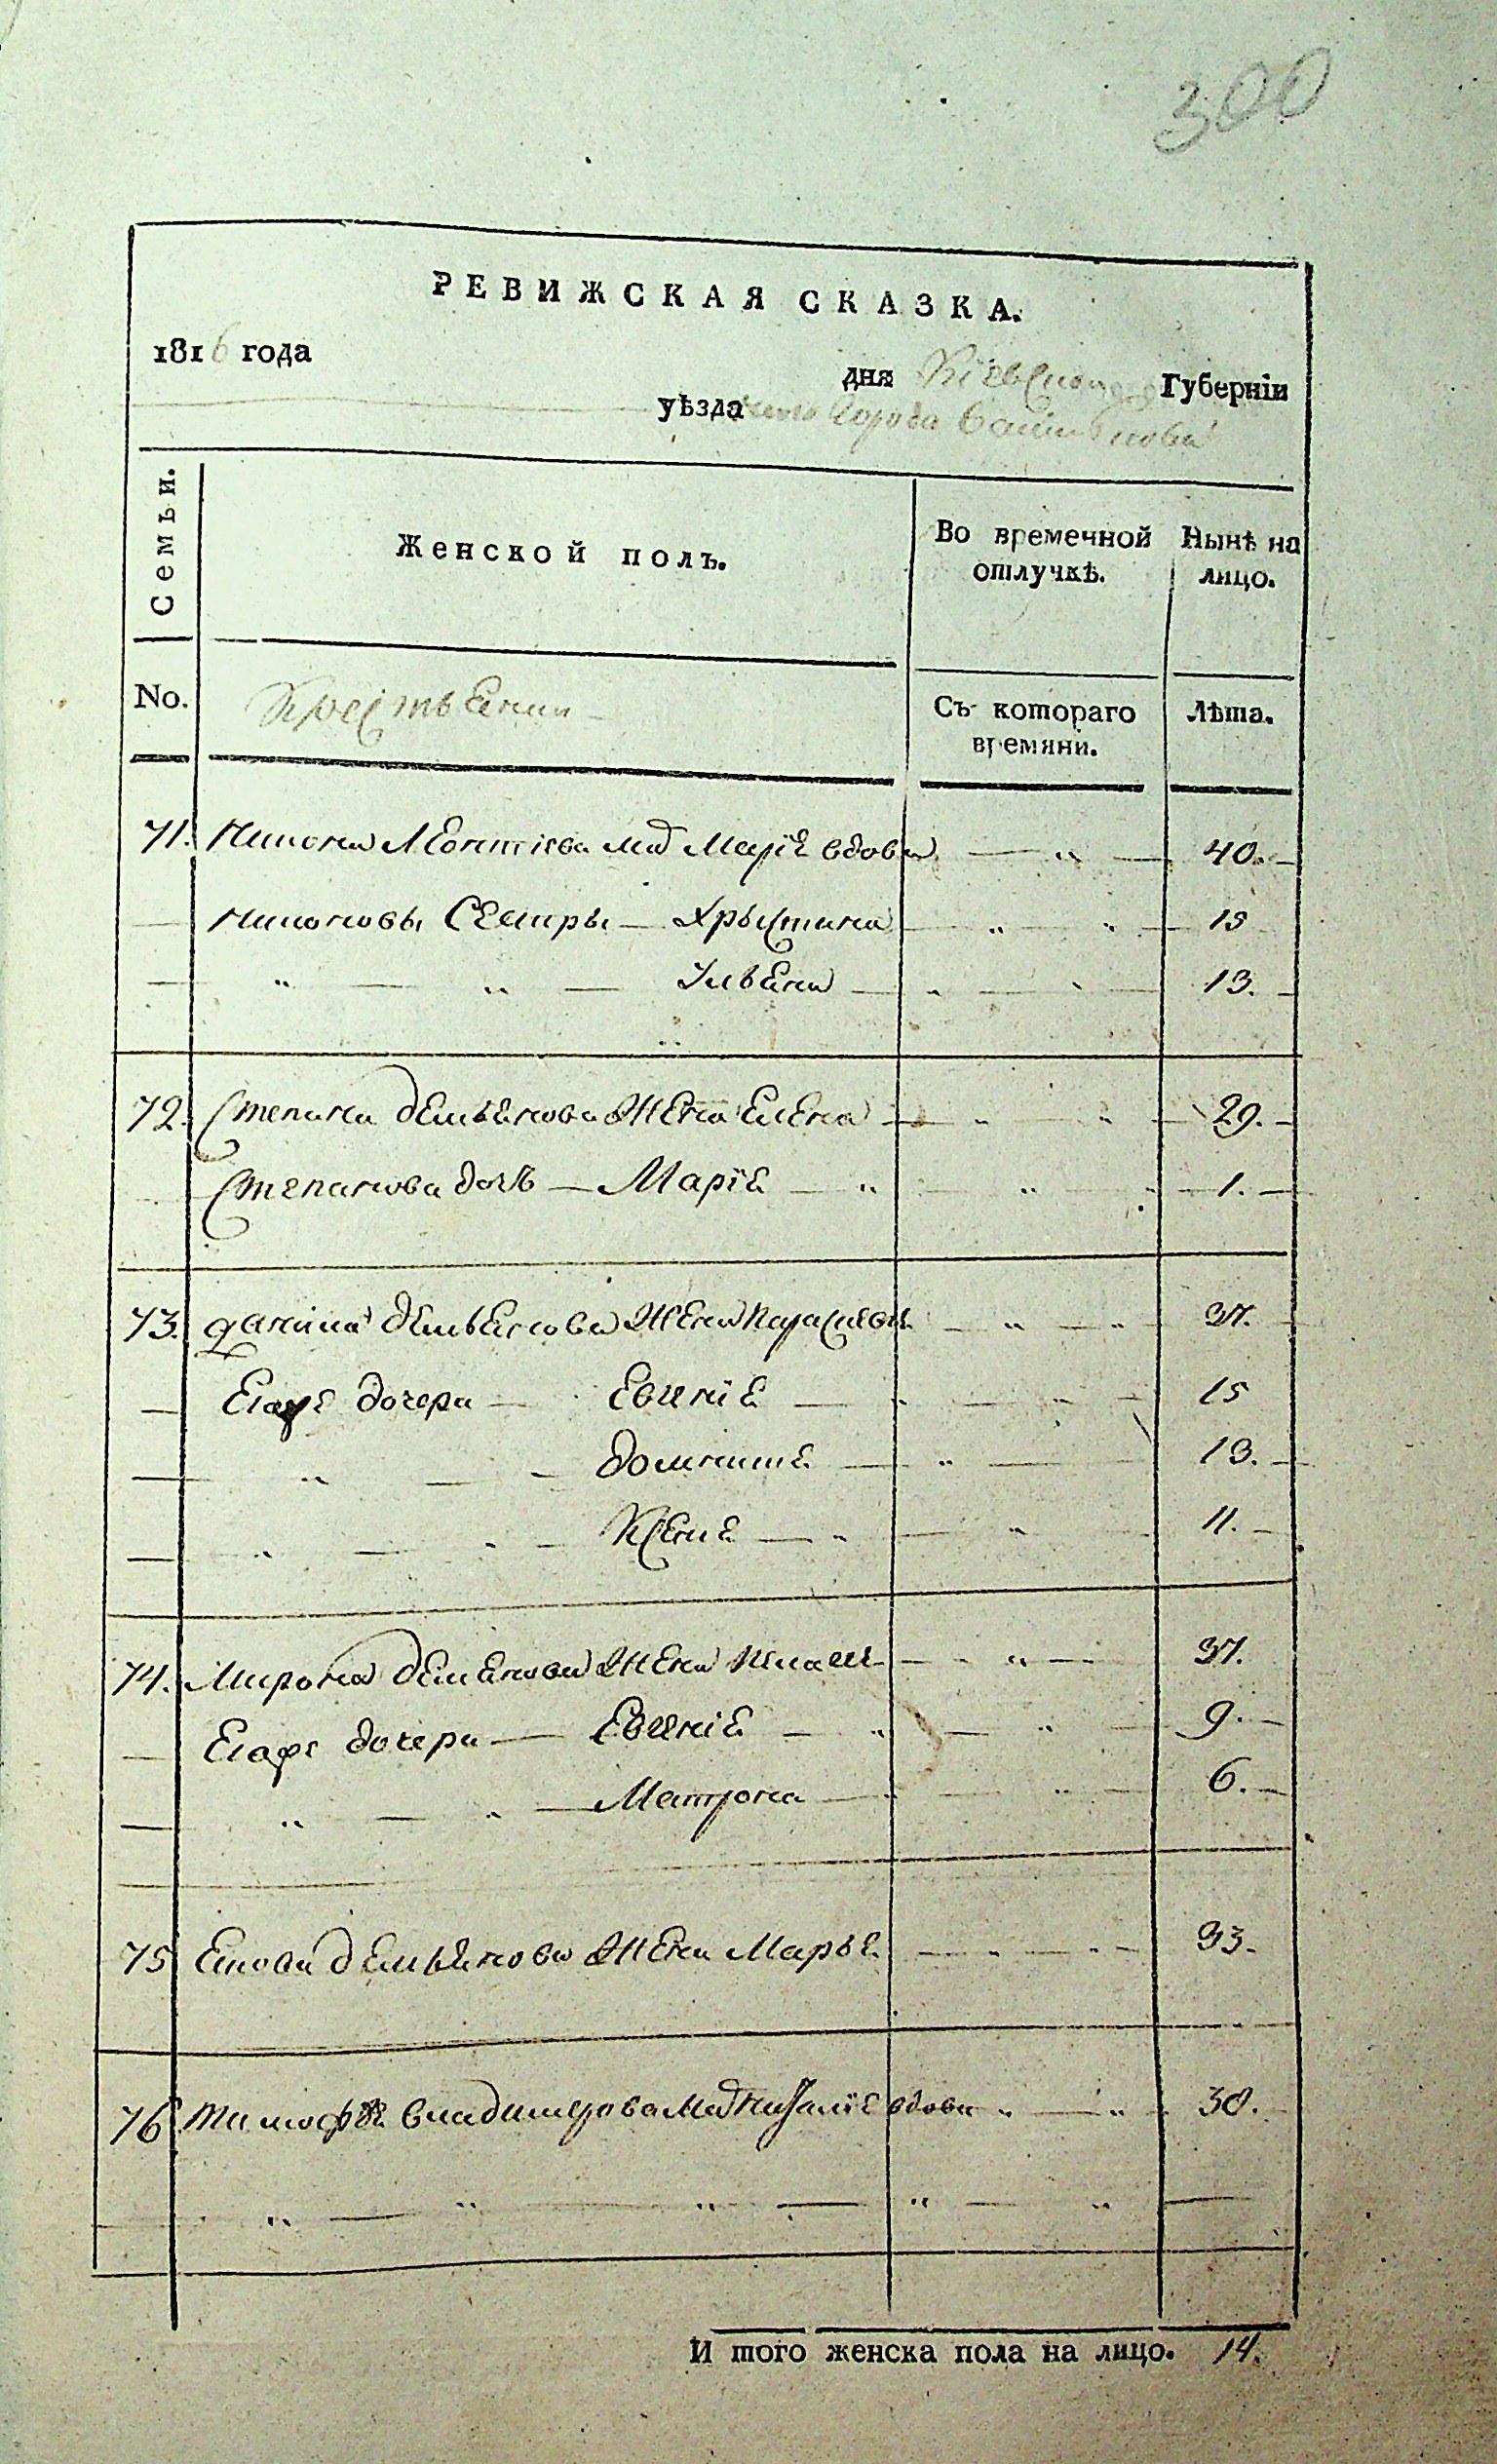 300
РЕВИЖСКАЯ СКАЗКА.
1816 года
дня Кіевской Губерніи
уѣзда города
Семьи.
Женской полъ.
Во времечной отлучкѣ.
Нынѣ на лицо.
No.
Крестьянин
Съ котораго времяни.
Лѣта.
71. Никона Леонтіева мат Маріѣ вдова 40.
Никоновы Сестры Хрыстина 15
Ульяна 13.
72. Степана демьянова Жена Елена 29.
Степанова дочь Маріѣ 1.
73. данила демьянова Жена Параскевия 37.
Егоже дочери Евгеніѣ 15
домникиѣ 13.
Ксениѣ 11.
74. Мирона демянова Жена 37.
Егоже дочери Евгеніѣ 9.
Матрона 6.
75 демьянова Жена Марьѣ 33.
76 тимофѣя владимерова мат Наталіѣ вдова 30.
И того женска пола на лицо. 14.